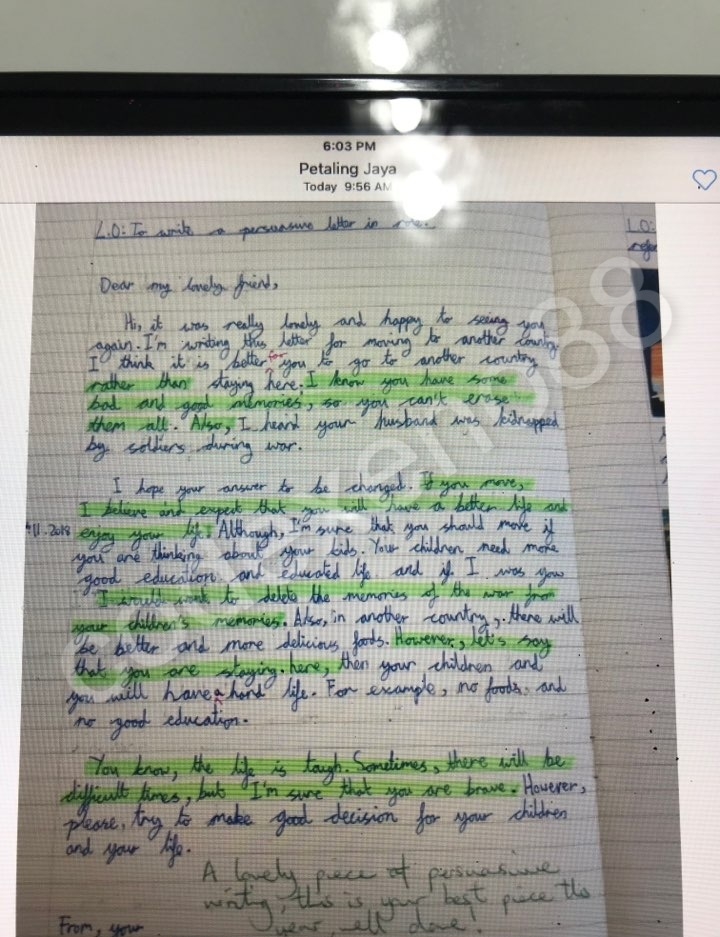 6:03 PM
Petaling Jaya
Today 9:56 AM
L.O: To write a persuasive letter in role.
L.O:
Dear my lovely friend,
Hi, it was really lovely and happy to seeing you
again. I'm writing this letter for moving to another country
I think it is better for you to go to another country
rather than staying here. I know you have some
bad and good memories, so you can't erase
them all. Also, I heard your husband was kidnapped
by soldiers during war.
I hope your answer to be changed. If you move,
I believe and expect that you will have a better life and
11.2018
enjoy your life. Although, I'm sure that you should move if
you are thinking about your kids. Your children need more
good education and educated life and if I was you
I would want to delete the memories of the war from
your children's memories. Also, in another country, there will
be better and more delicious foods. However, let's say
that you are staying here, then your children and
you will have a hard life. For example, no foods and
no good education.
You know, the life is tough. Sometimes, there will be
difficult times, but I'm sure that you are brave. However,
please, try to make good decision for your children
and your life.
A lovely piece of persuasive
writing, this is your best piece this
year, well done.
From, your